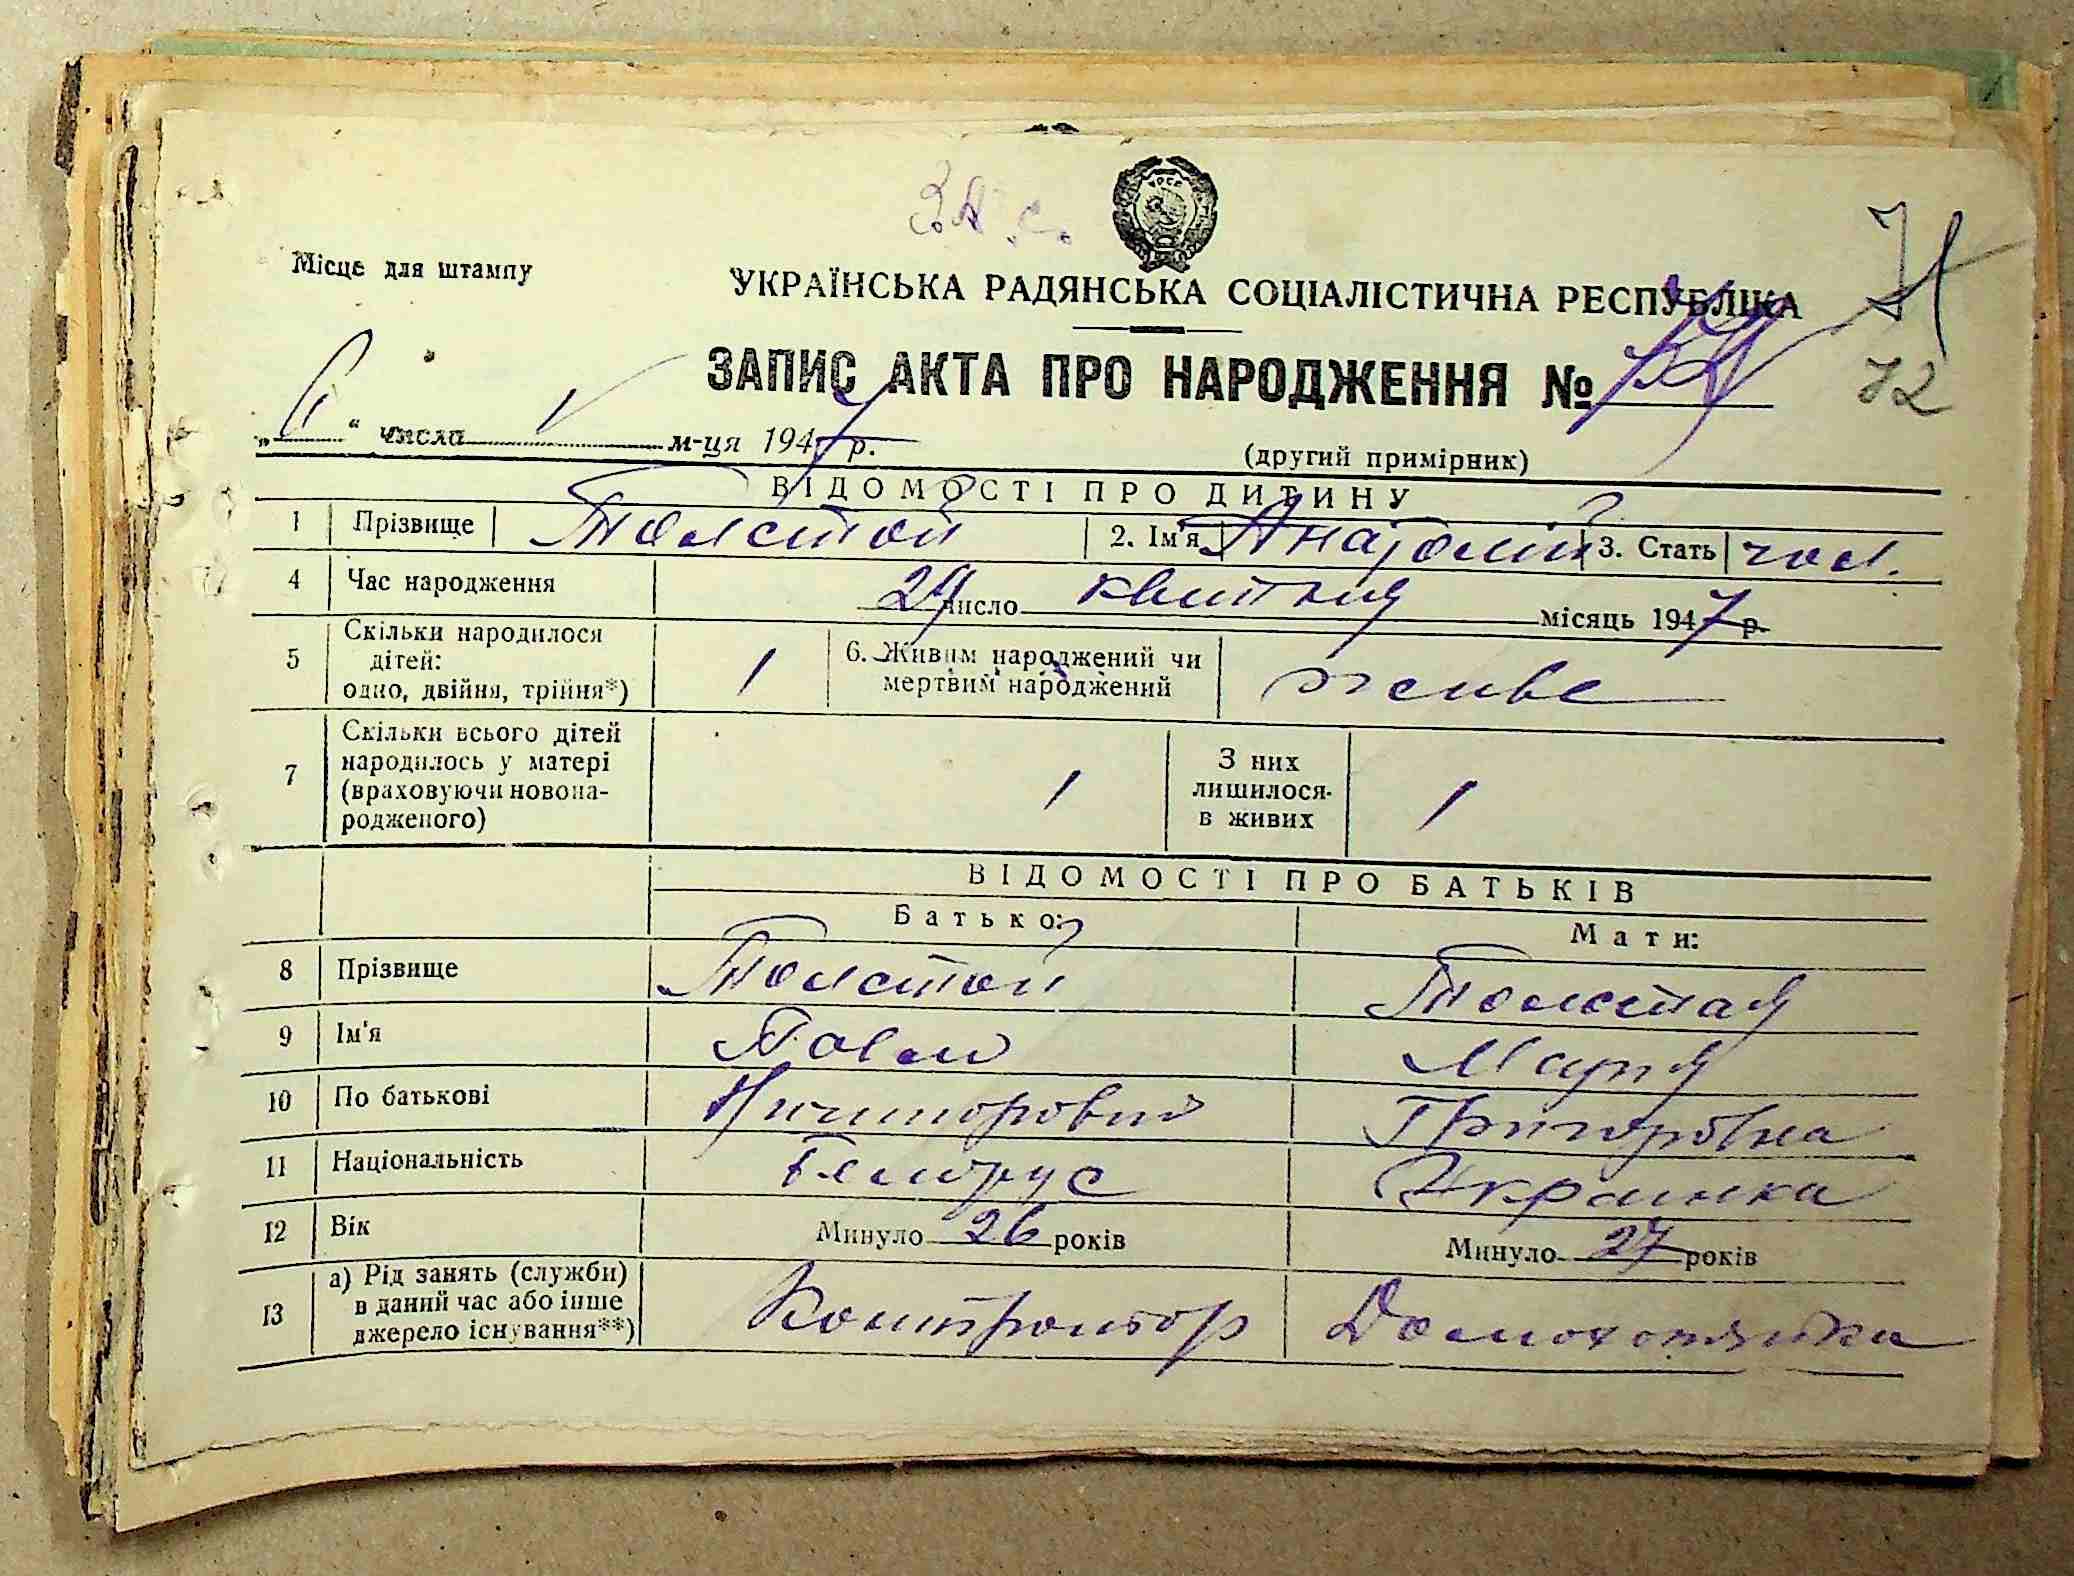 З.А.С.
71
Місце для штампу
УКРАЇНСЬКА РАДЯНСЬКА СОЦІАЛІСТИЧНА РЕСПУБЛІКА
ЗАПИС АКТА ПРО НАРОДЖЕННЯ №
72
„6“ числа V м-ця 1947 р.
(другий примірник)
ВІДОМОСТІ ПРО ДИТИНУ
1 Прізвище Толстой 2. Ім'я Анатолій 3. Стать чол.
4 Час народження 29 число квітня місяць 1947 р.
5 Скільки народилося дітей: одно, двійня, трійня*) 1 6. Живим народжений чи мертвим народжений живе
7 Скільки всього дітей народилось у матері (враховуючи новонародженого) 1 З них лишилося в живих 1
ВІДОМОСТІ ПРО БАТЬКІВ
Батько: Мати:
8 Прізвище Толстой Толстая
9 Ім'я Павло Марія
10 По батькові Ничипорович Григорівна
11 Національність Білорус Українка
12 Вік Минуло 26 років Минуло 27 років
13 а) Рід занять (служби) в даний час або інше джерело існування**) Контрольор Домохозяйка